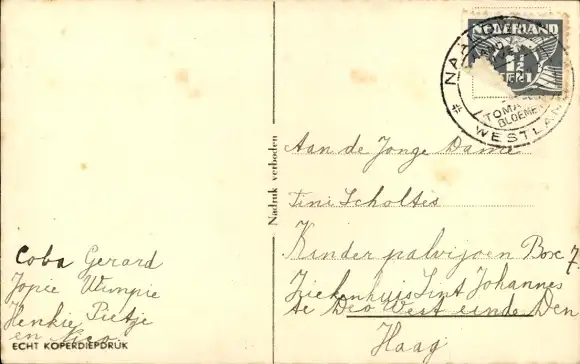 NEDERLAND
1½
CENT
NAA
TOMA
BLOEME
WESTLAN
Nadruk verboden
Aan de Jonge Dame
Tini Scholtes
Kinder palvijoen Box 7
Ziekenhuis Sint Johannes
te Deo West einde Den
Haag
Coba Gerard
Jopie Wimpie
Henkie Pietje
en Nico
ECHT KOPERDIEPDRUK